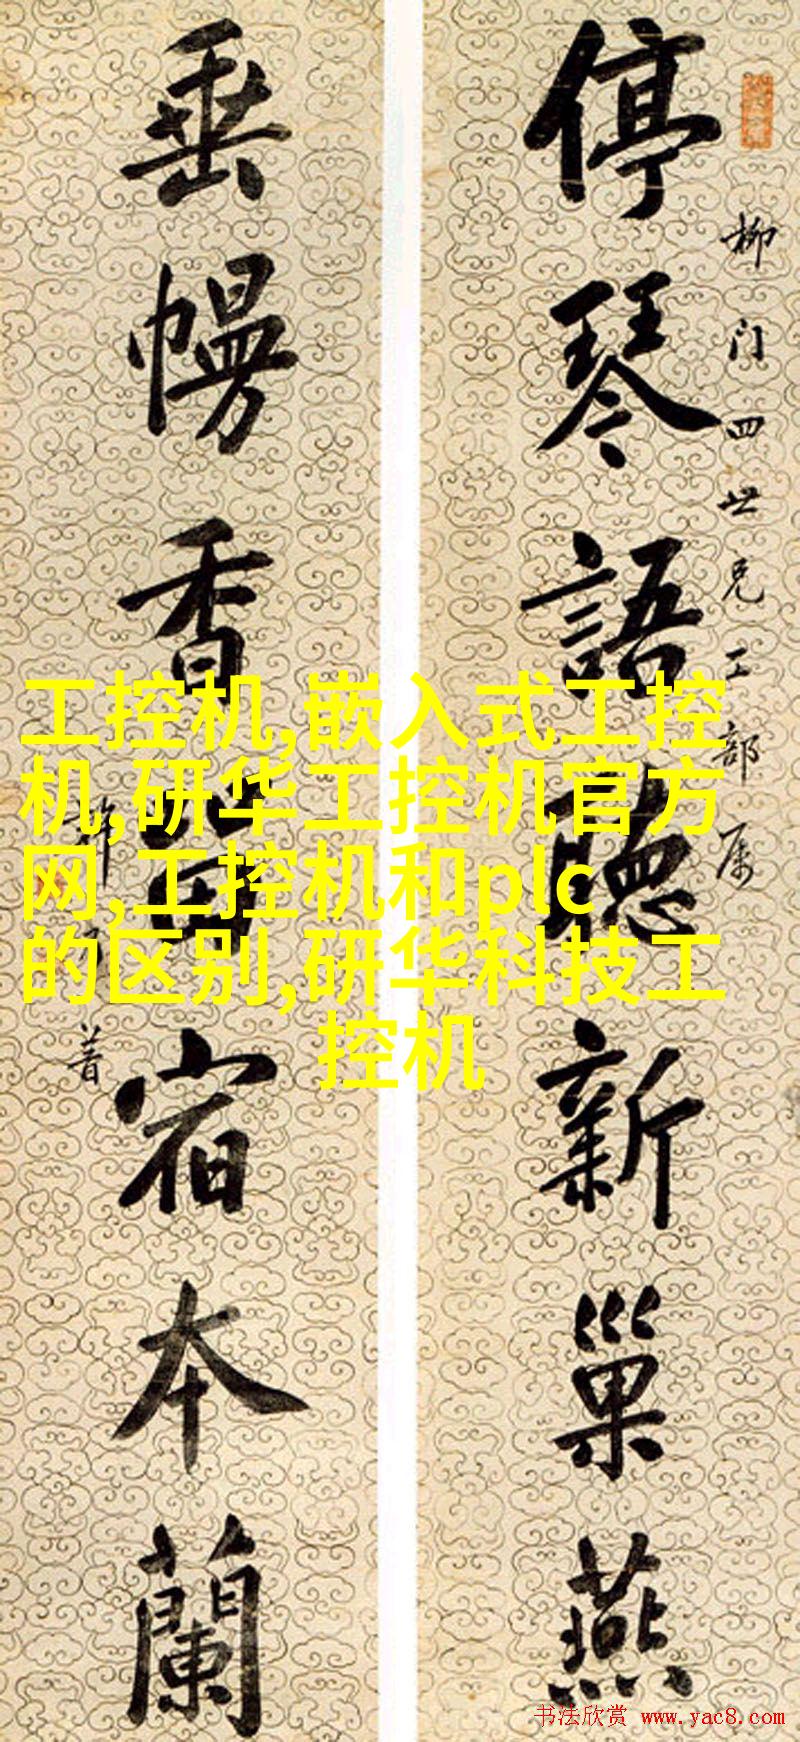 柳门四世兄工部属
停琴語聽新巢燕
垂幔香宿本蘭
許普
工控机,嵌入式工控
机,研华工控机官方
网,工控机和plc
的区别,研华科技工
控机
书法欣赏 www.yac8.com